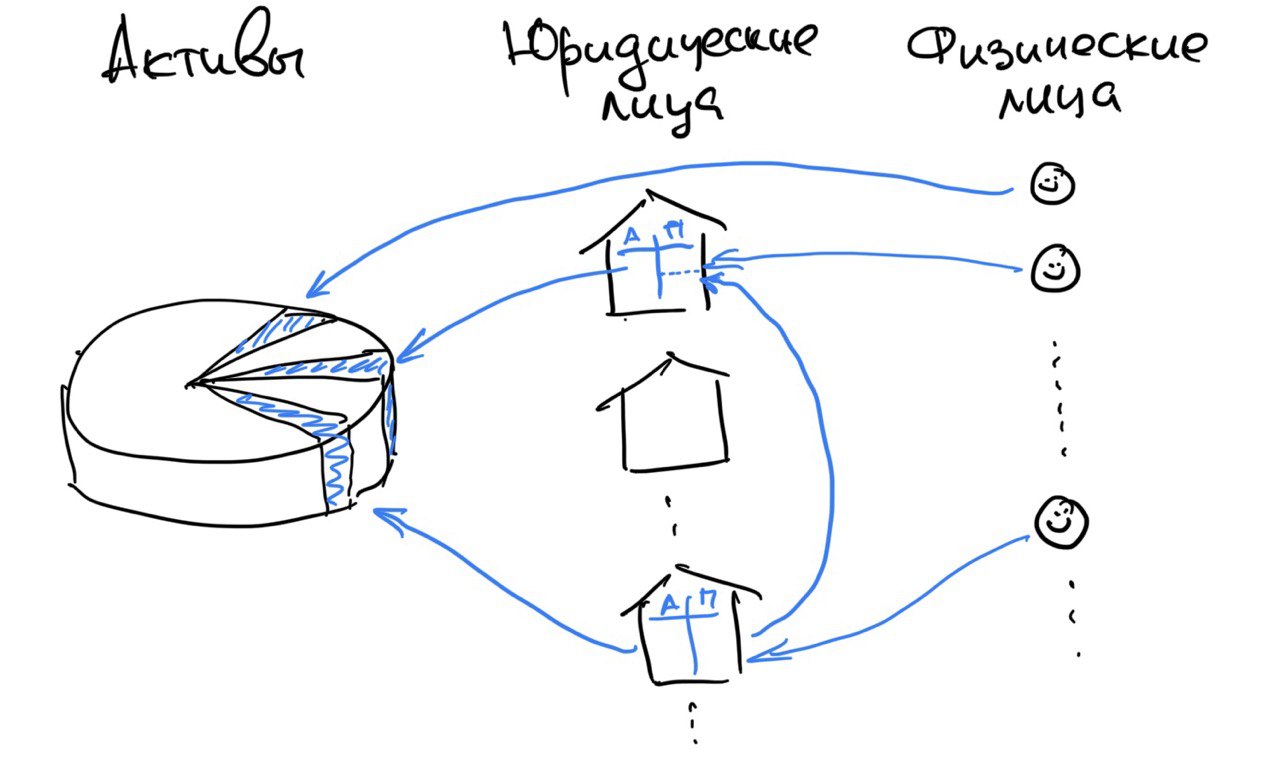 Активы
Юридические
лица
Физические
лица
А П
А П